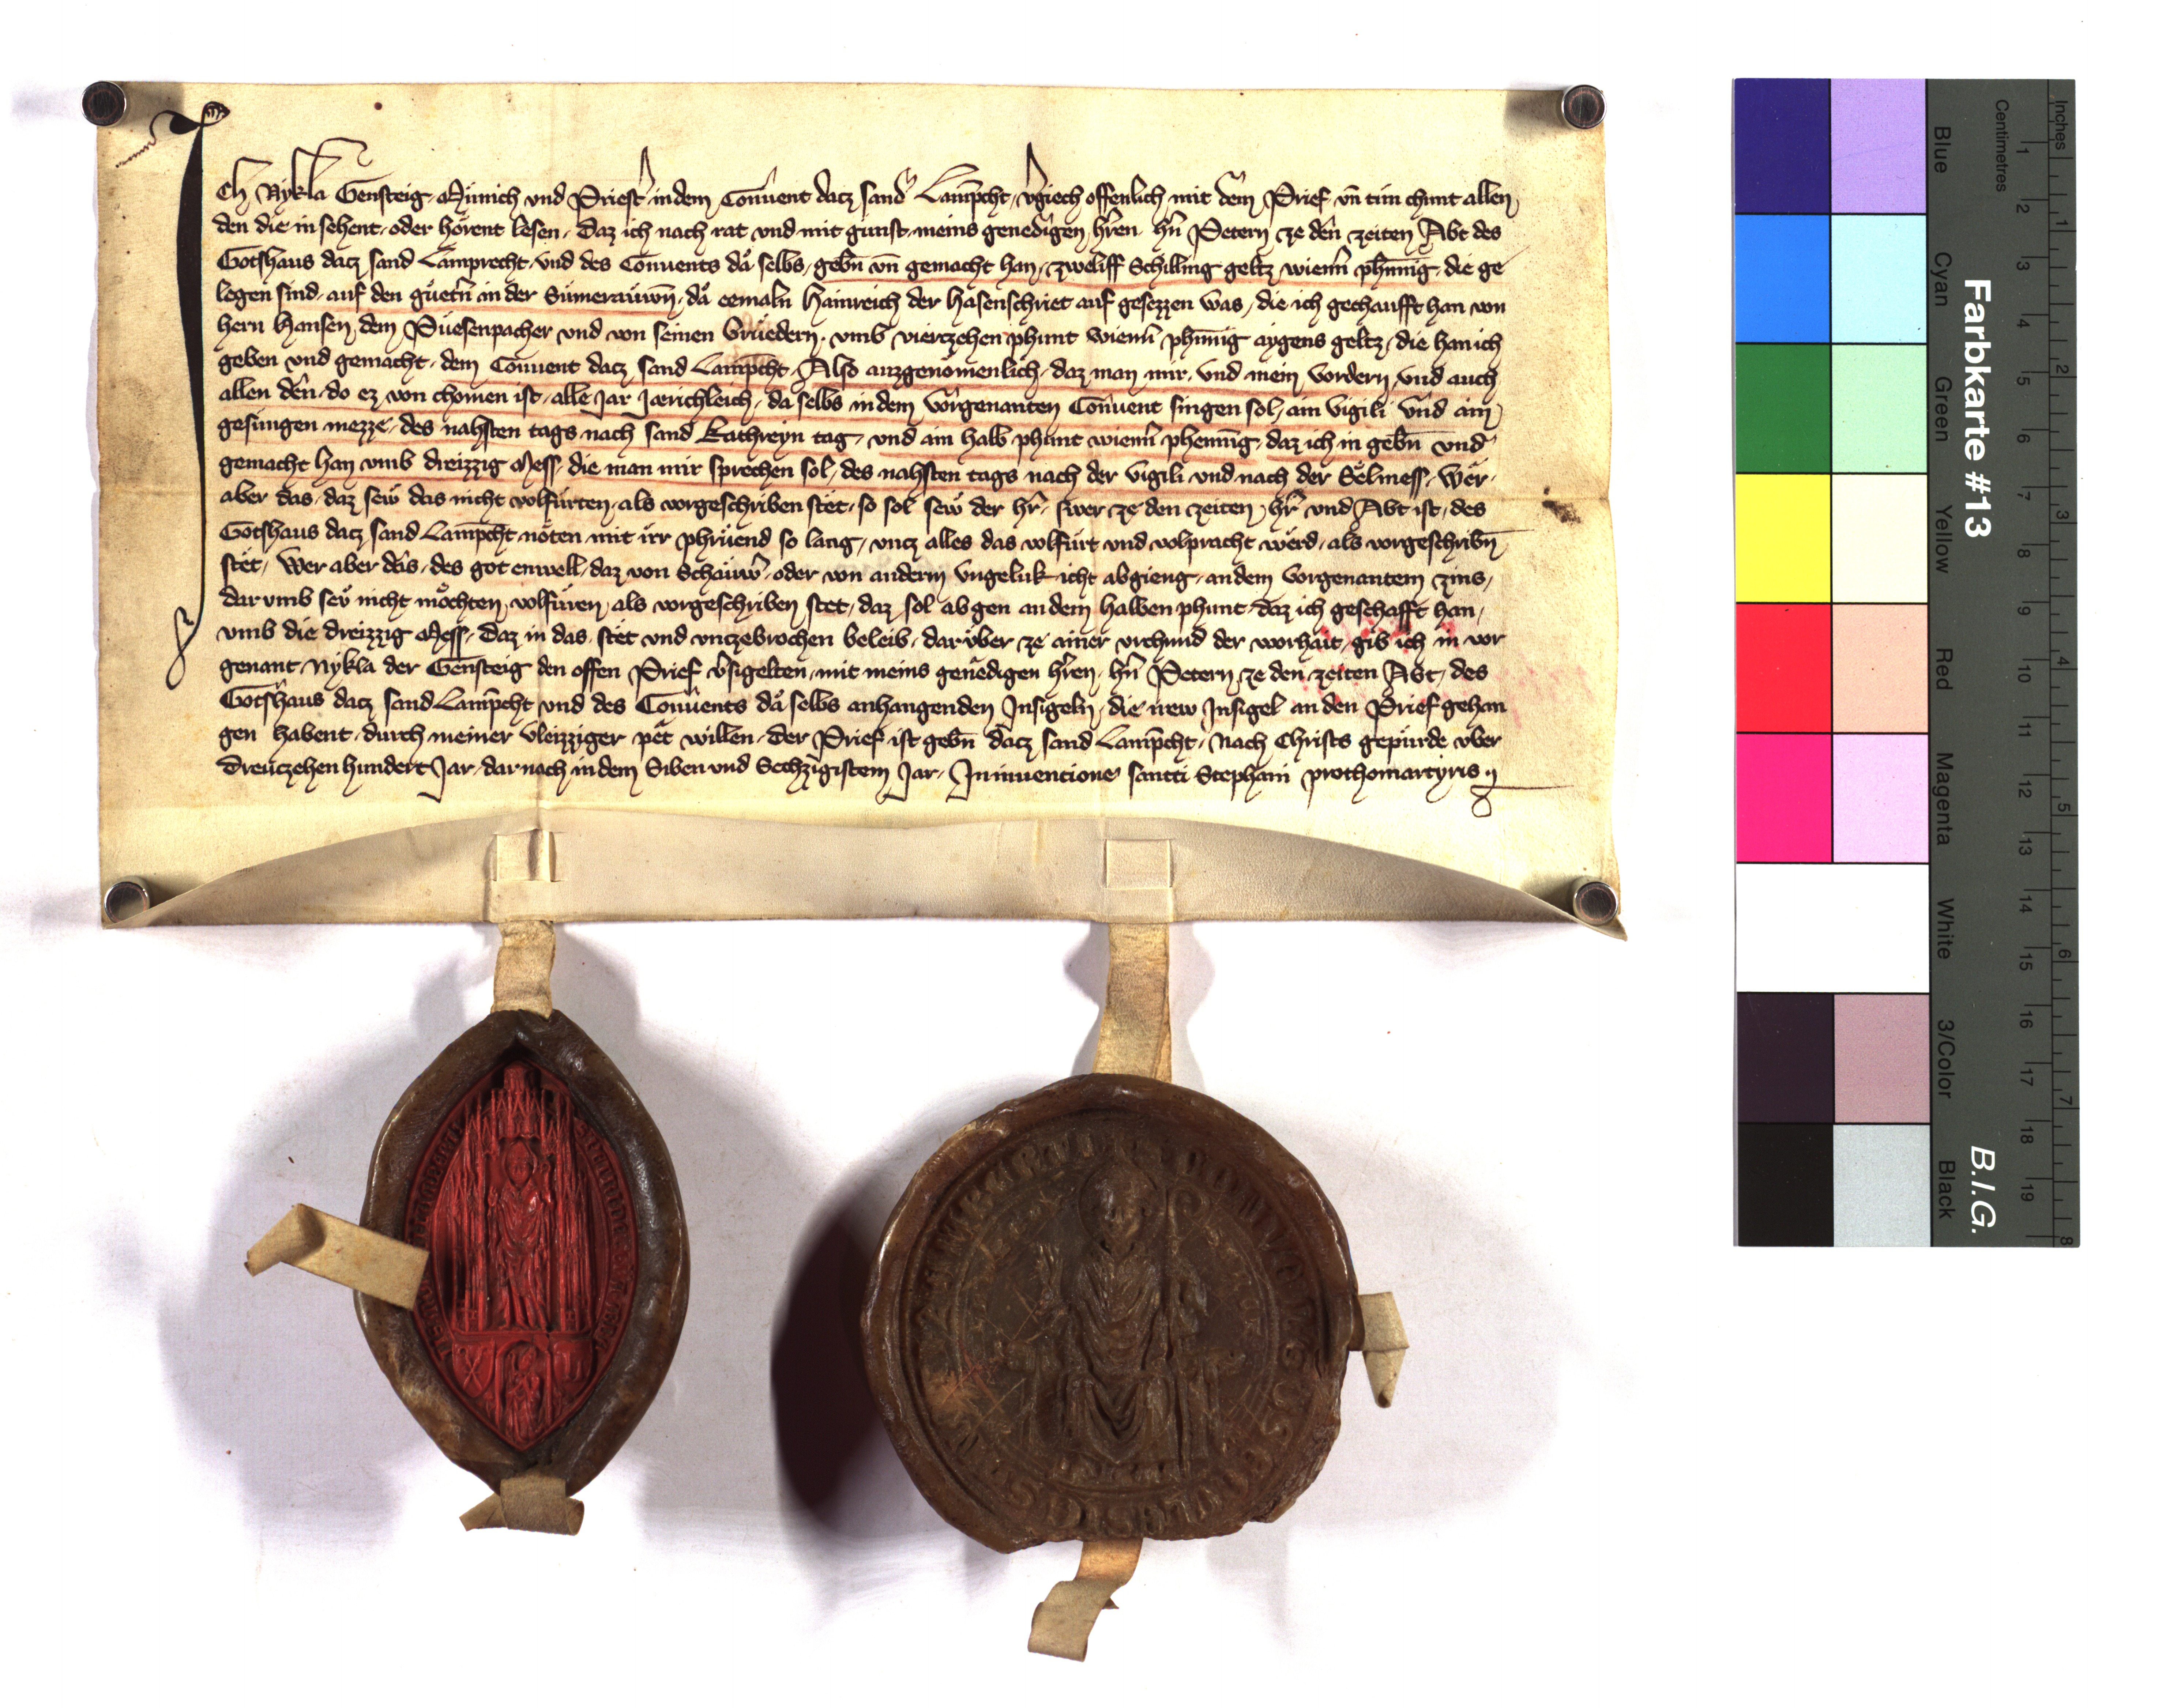 Ich Nykla Gensteig Münich und Priestˀ in dem Conuent dacz sand Lamp̄cht, vˀgiech offenlich mit dem Prief vn̄ tun chunt allen
den die in sehent, oder hörent lesen, Daz ich nach rat vnd mit gunst meins genedigen hˀren hˀn Petern ze den zeiten Abt des
Gotshaus dacz sand Lamprecht, vnd des Conuents da selbs, gebn̄ vn̄ gemacht han, zweliff Schilling geltz wienn̄ phennig, die ge
legen sind, auf den güetn̄ in der Sumerauwn̄, da eemaln Hainreich der Hasenschriet auf gesezzen was, die ich gechaufft han von
hern Hansen dem Püesenpacher vnd von seinen brüedern, vmb vierczehen phunt wienn̄ phennig aygens geltz, die han ich
geben vnd gemacht, dem Conuent dacz sand Lamp̄cht, Also auzgenomenlich, daz man mir, vnd mein vordern, vnd auch
allen den, do ez von chomen ist, alle Jar Jærichleich, da selbs in dem vorgenanten Conuent singen sol, ain vigili vnd ain
gesungen mezze, des nahsten tags nach sand Kathreyn tag, vnd ain halb phunt wienn̄ phennig, daz ich in gebn̄ vnd
gemacht han vmb dreizzig Mess, die man mir sprechen sol, des nahsten tags nach der vigili vnd nach der Selmess, Wer,
aber das, daz sew das nicht volfürten, als vorgeschriben stet, so sol sew der hˀr, swer ze den zeiten hˀr vnd Abt ist, des
Gotshaus dacz sand Lamp̄cht nöten mit irr phrüend so lang, vncz alles das volfürt vnd volpracht werd, als vorgeschribn̄
stet, Wer aber das, des got enwell, daz von Schauwˀ, oder von anderm vngeluk icht abgieng, an dem vorgenantem zins,
dar vmb sew nicht möchten volfüren als vorgeschriben stet, daz sol ab gen an dem halben phunt, daz ich geschafft han,
vmb die dreizzig Mess, Daz in das stet vnd vnczebrochen beleib, darüber ze ainer vrchund der worhait, gib ich in vor
genant Nykla der Gensteig den offen Prief vˀsigelten, mit meins genedigen hˀren, hˀn Petern ze den zeiten Abt, des
Gotshaus dacz sand Lamp̄cht vnd des Conuents da selbs anhangenden Insigeln, die irew Insigel an den Prief gehan
gen habent, durch meiner vleizziger pet willen, Der Prief ist gebn̄ dacz sand Lamp̄cht, Nach Christs gepürde über
Dreuczehen hundert Jar, dar nach in dem Siben vnd Sechzigistem Jar, In inuentione sancti Stephani prothomartyris
Farbkarte #13
B.I.G.
Inches
Centimetres
1 2 3 4 5 6 7 8
1 2 3 4 5 6 7 8 9 10 11 12 13 14 15 16 17 18 19
Blue
Cyan
Green
Yellow
Red
Magenta
White
3/Color
Black